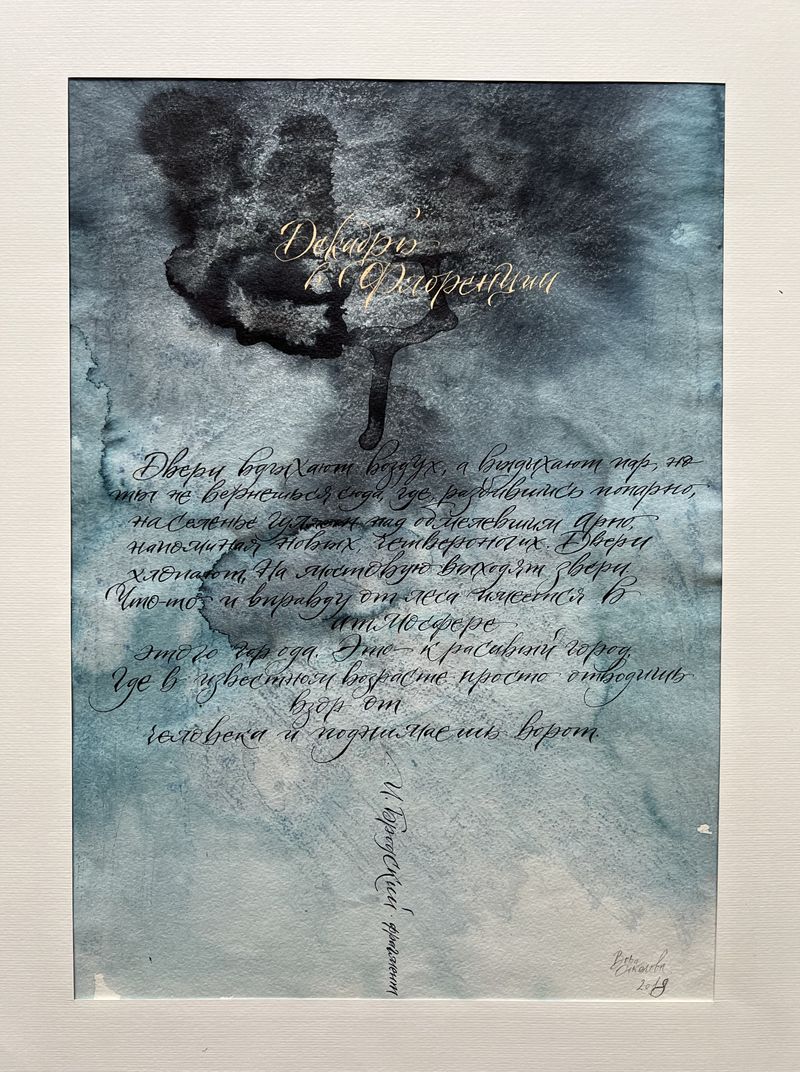 Декабрь
во Флоренции
Двери вдыхают воздух, а выдыхают пар, но
ты не вернешься сюда, где, разбившись попарно,
населенье гуляет над обмелевшим Арно,
напоминая новых четвероногих. Двери
хлопают, На мостовую выходят звери.
Что-то и вправду от леса имеется в
атмосфере
этого города. Это красивый город,
Где в известном возрасте просто отводишь
взор от
человека и поднимаешь ворот.
И. Бродский фрагмент
2018